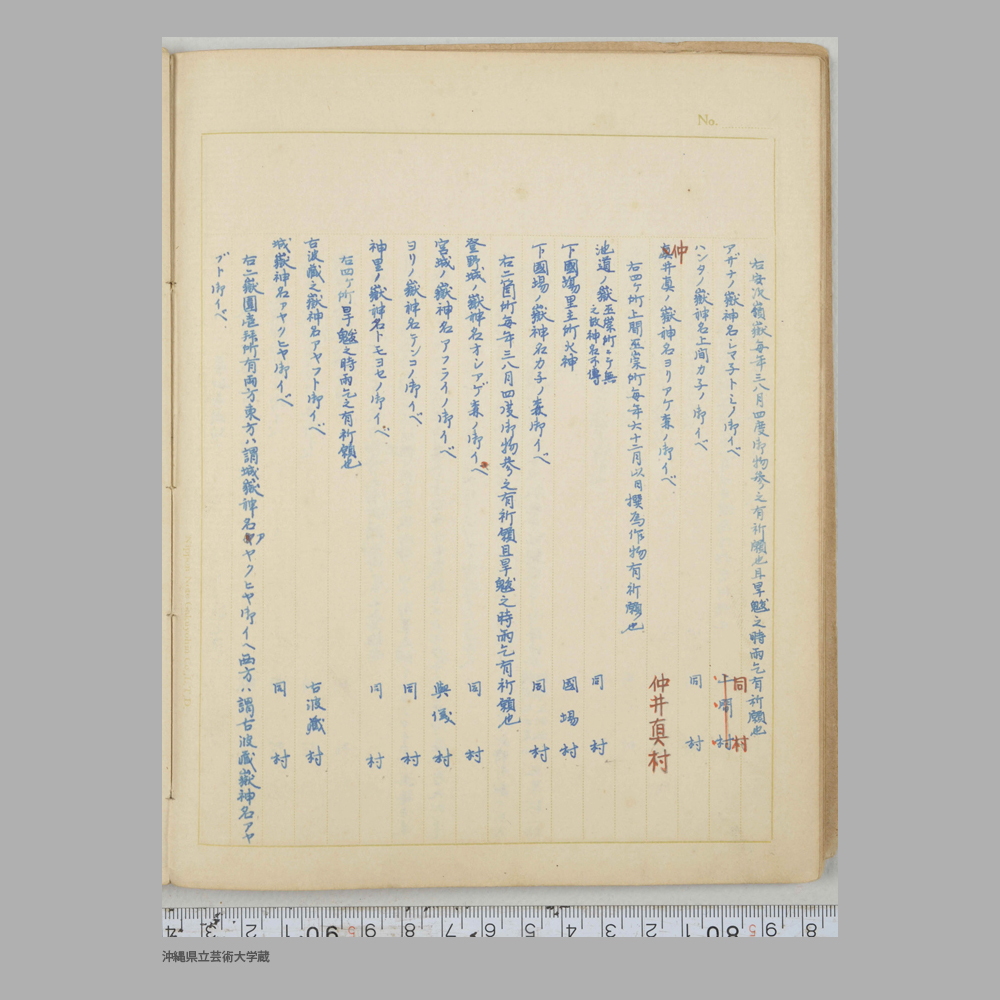 No.
右安次嶺嶽毎年三八月四度御物参之有祈願也且旱魃之時雨乞有祈願也
アザナノ嶽神名シマ子トミノ御イベ 上間村 同村
ハンタノ嶽神名上間カ子ノ御イベ 同村
仲
真井真ノ嶽神名ヨリアゲ森ノ御イベ 仲井真村
右四ヶ所上間巫崇所毎年六十二月以日撰為作物有祈願也
池道ノ嶽 巫崇所ニテ無之故神名不傳 同村
下國塲里主所火神 國塲村
下國場ノ嶽神名カ子ノ森御イベ 同村
右二箇所毎年三八月四度御物参之有祈願且旱魃之時雨乞有祈願也
登野城ノ嶽神名オシアゲ森ノ御イベ 同村
宮城ノ嶽神名アフライノ御イベ 與儀村
ヨリノ嶽神名テンコノ御イベ 同村
神里ノ嶽神名トモヨセノ御イベ 同村
右四ヶ所旱魃之時雨乞之有祈願也
古波藏之嶽神名アヤフト御イベ 古波藏村
城嶽神名アヤクヒヤ御イベ 同村
右二嶽圍壱縁所有両方東方ハ謂城嶽神名アヤクヒヤ御イヘ西方ハ謂古波藏嶽神名アヤ
ブト御イベ
沖縄県立芸術大学蔵